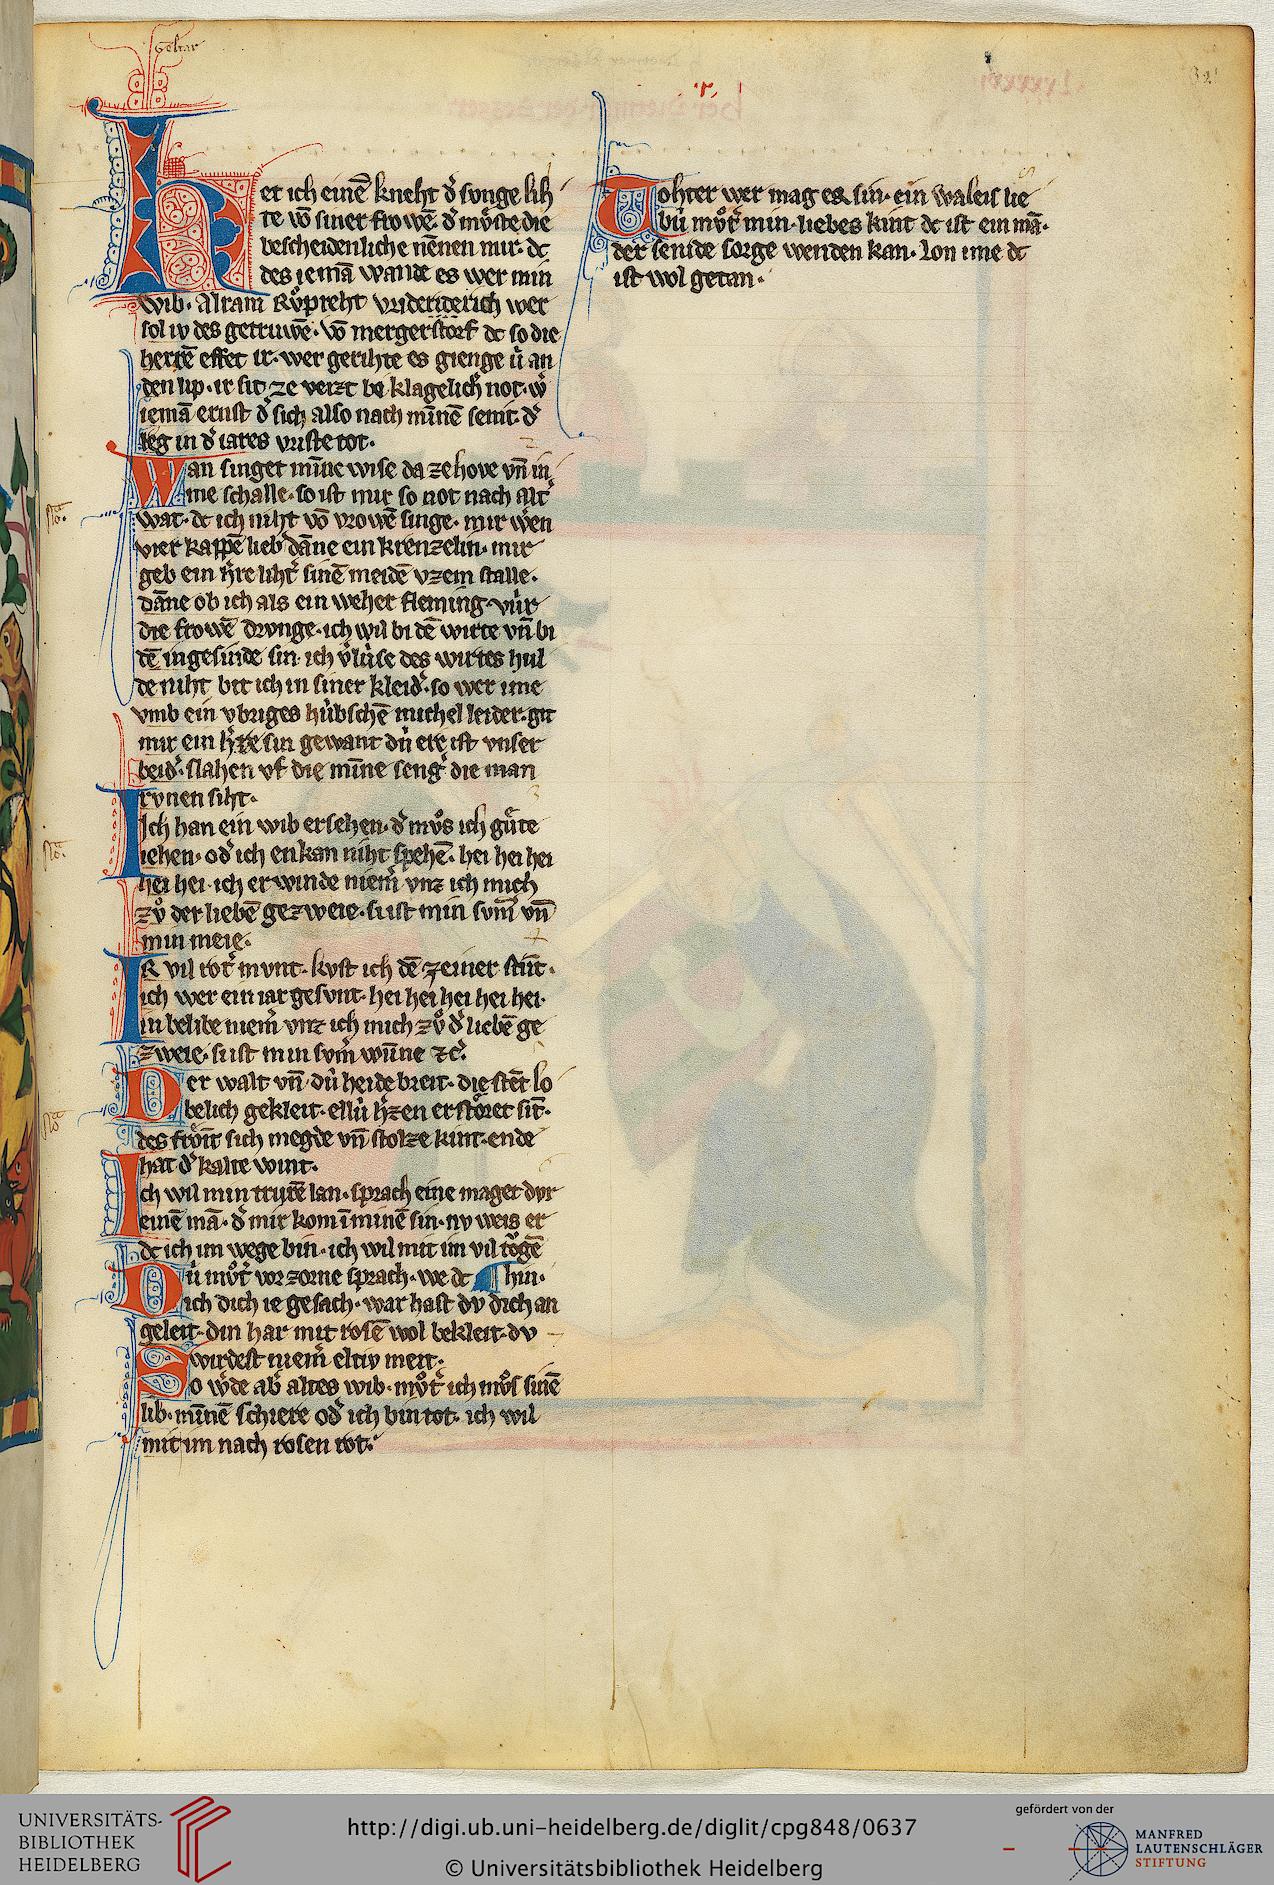 het ich einē kneht d͛ sunge liħ
te vō siner frowē. d͛ mvͤste die
bescheidenliche nēnen mir. dc
des iemā wande es wer min
wib. Alram Rvͦpreht vriderich wer
sol iv des getruwē. vō mergerstorf dc so die
herrē effet ir. wer gerihte es gienge v̇ an
den lip. ir sit ze verzt bi klagelich͛ not. w͛
iemā ernst d͛ sich also nach mīnē senit. d͛
leg in d͛ iares vriste tot.
Wan singet mīne wise da ze hove vn̄ in
me schalle. so ist mir so not nach alt͛
wat. dc ich niht vō vrowē singe. mir w͛en
vier kappē lieb dāne ein krenzelin. mir
geb ein h͛re liht͛ sinē meidē vzem stalle.
dāne ob ich als ein weher fleming. vu̇r
die frowē drvnge. ich wil bi dē wirte vn̄ bi
dē ingesinde sin. ich v͛lu̇se des wirtes hul
de niht bit ich in siner kleid͛. so wer ime
vmb ein vbriges hu̇bschē michel leider. git
mir ein h͛re sin gewant du̇ ere ist vnser
beid͛. slahen vf die mīne seng͛ die man
rvnen siht.
Ich han ein wib ersehen. d͛ mvͦs ich gu̇te
iehen. od͛ ich enkan niht spehē. hei hei hei
hei hei. ich er winde niem͛ vnz ich mich
zvͦ der liebē gezweie. sust min svm͛ vn̄
min meie.
IR vil rot͛ mvnt. kvst ich dē zeiner stūt.
ich wer ein iar gesvnt. hei hei hei hei hei.
in belibe niem͛ vnz ich mich zvͦ d͛ liebē ge
zweie. sust min svm͛ wu̇nne zc͛.
Der walt vn̄ du̇ heide breit. die stēt lo
belich gekleit. ellu̇ h͛zen erstöret sīt.
des fröit sich megde vn̄ stolze kint. ende
hat d͛ kalte wint.
Ich wil min trurē lan. sprach eine maget dvr
einē mā. d͛ mir kom ī minē sin. nv weis er
dc ich im wege bin. ich wil mit im vil tögē
hin.
Du̇ mvͦt͛ vor zorne sprach. we dc
ich dich ie gesach. war hast dv dich an
geleit. din har mit rosē wol bekleit. dv
wirdest niem͛ eltiv meit.
So w͛de ab͛ altes wib. mvͦt͛ ich mvͦs sinē
lib. mīnē schiere od͛ ich bin tot. ich wil
mit im nach rosen rot.
Tohter wer mag es sin. ein waleis lie
bu̇ mvͦt͛ min. liebes kint dc ist ein mā.
der senide sorge wenden kan. Lon ime dc
ist wol getan.
UNIVERSITÄTS-
BIBLIOTHEK
HEIDELBERG
http://digi.ub.uni-heidelberg.de/diglit/cpg848/0637
© Universitätsbibliothek Heidelberg
gefördert von der
MANFRED
LAUTENSCHLÄGER
STIFTUNG